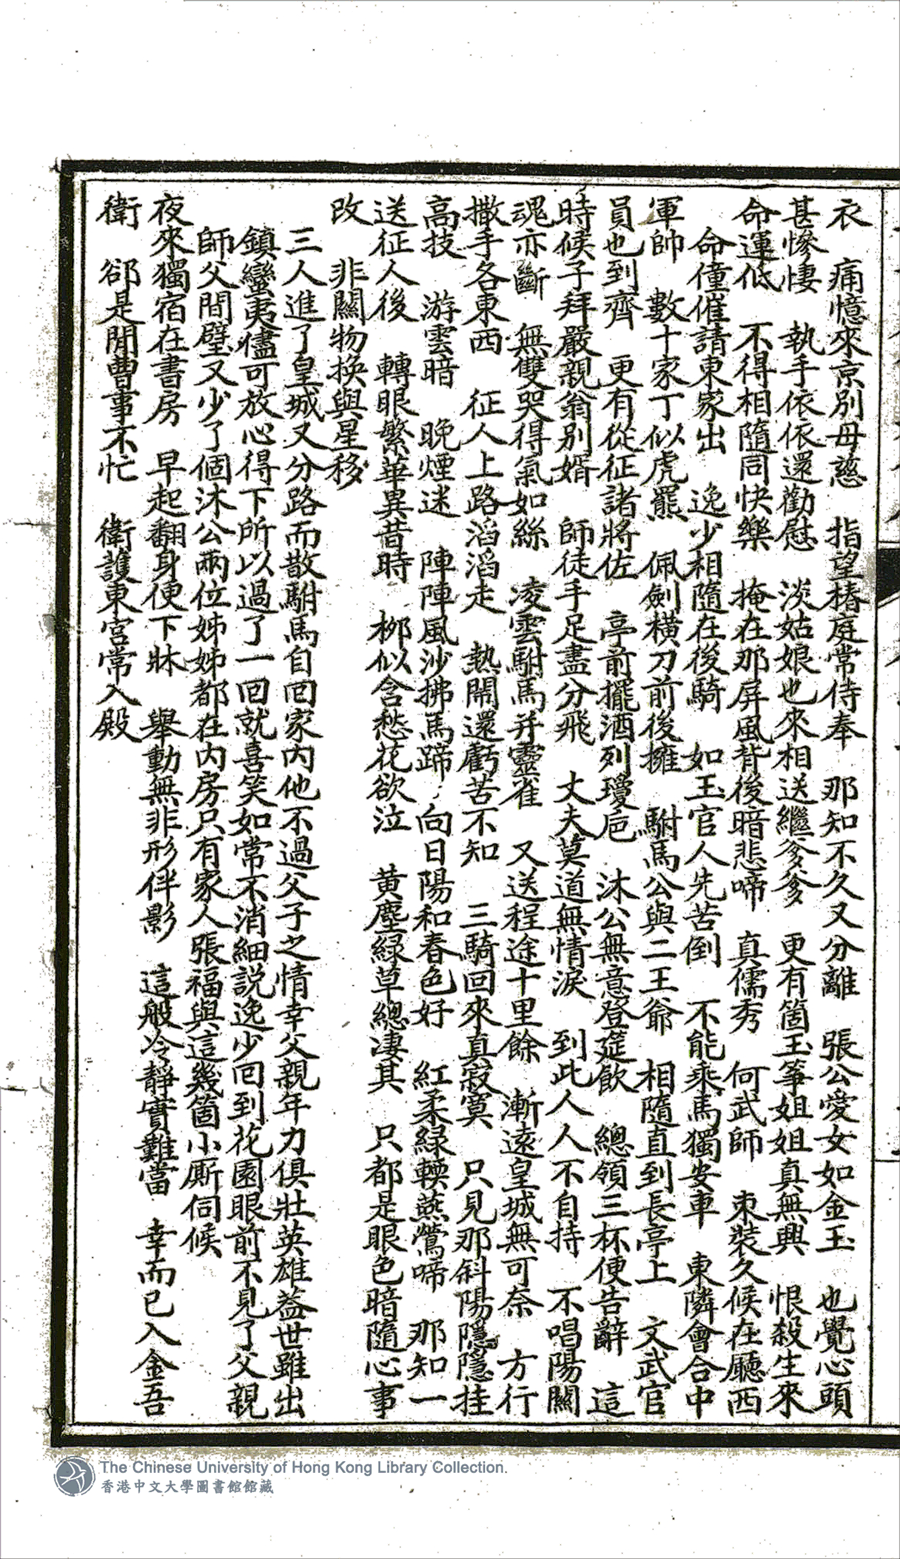 衣　痛憶來京別母慈　指望椿庭常侍奉　那知不久又分離　張公愛女如金玉　也覺心頭
甚慘悽　執手依依還勸慰　淡姑娘也來相送繼爹爹　更有箇玉箏姐姐真無興　恨殺生來
命運低　不得相隨同快樂　掩在那屏風背後暗悲啼　真儒秀　何武師　束裝久候在廳西
命僮催請東家出　逸少相隨在後騎　如玉官人先苦倒　不能乘馬獨安車　東隣會合中
軍帥　數十家丁似虎羆　佩劍橫刀前後擁　駙馬公與二王爺　相隨直到長亭上　文武官
員也到齊　更有從征諸將佐　亭前擺酒列瓊卮　沐公無意登筵飲　總領三杯便告辭　這
時候子拜嚴親翁別婿　師徒手足盡分飛　丈夫莫道無情淚　到此人人不自持　不唱陽關
魂亦斷　無雙哭得氣如絲　凌雲駙馬并靈雀　又送程途十里餘　漸遠皇城無可奈　方行
撒手各東西　征人上路滔滔走　熱鬧還虧苦不知　三騎回來真寂寞　只見那斜陽隱隱挂
高技　游雲暗　晚煙迷　陣陣風沙拂馬蹄　向日陽和春色好　紅柔綠輭燕鶯啼　那知一
送征人後　轉眼繁華異昔時　柳似含愁花欲泣　黄塵綠草總凄其　只都是眼色暗隨心事
改　非關物換與星移
三人進了皇城又分路而散駙馬自回家内他不過父子之情幸父親年力俱壯英雄益世雖出
鎮蠻夷儘可放心得下所以過了一回就喜笑如常不消細説逸少回到花園眼前不見了父親
師父間壁又少了個沐公兩位姊姊都在内房只有家人張福與這幾箇小厮伺候
夜來獨宿在書房　早起翻身便下牀　舉動無非形伴影　這般冷靜實難當　幸而已入金吾
衛　郤是閒曹事不忙　衛護東宫常入殿
The Chinese University of Hong Kong Library Collection.
香港中文大學圖書館館藏